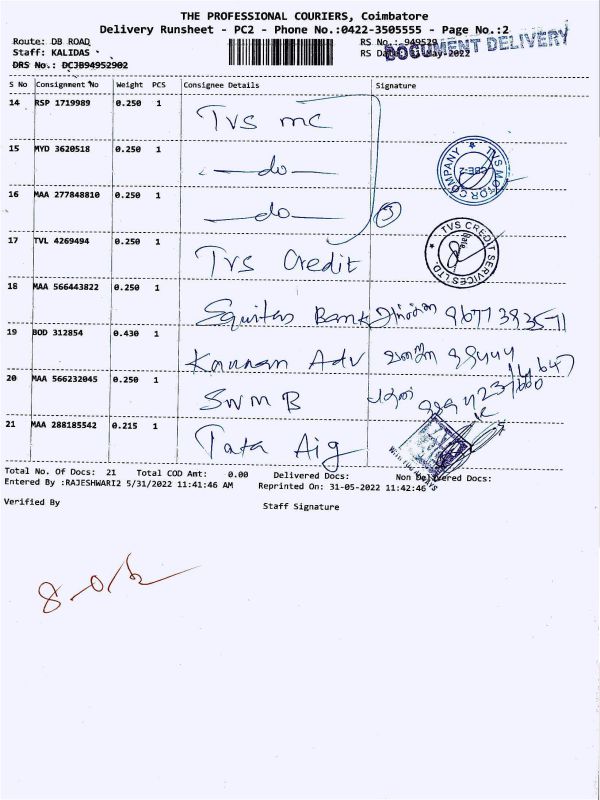 THE PROFESSIONAL COURIERS, Coimbatore
Delivery Runsheet - PC2 - Phone No.:0422-3505555 - Page No.:2
Route: DB ROAD
RS No.: 949529
DOCUMENT DELIVERY
Staff: KALIDAS
RS Date: 31-May-2022
DRS No.: DCJB94952902
S No Consignment No Weight PCS Consignee Details Signature
14 RSP 1719989 0.250 1 TVS mc
15 MYD 3620518 0.250 1 —do—
TVS MOTOR COMPANY
16 MAA 277848810 0.250 1 —do— 3
17 TVL 4269494 0.250 1 TVS Credit
TVS CREDIT SERVICES LTD.
18 MAA 566443822 0.250 1 Equitas Bank
19 BOD 312854 0.430 1 Kannan Adv
20 MAA 566232045 0.250 1 SWMB
21 MAA 288185542 0.215 1 Tata Aig
Total No. Of Docs: 21 Total COD Amt: 0.00 Delivered Docs: Non Delivered Docs:
Entered By :RAJESHWARI2 5/31/2022 11:41:46 AM Reprinted On: 31-05-2022 11:42:46
Verified By Staff Signature